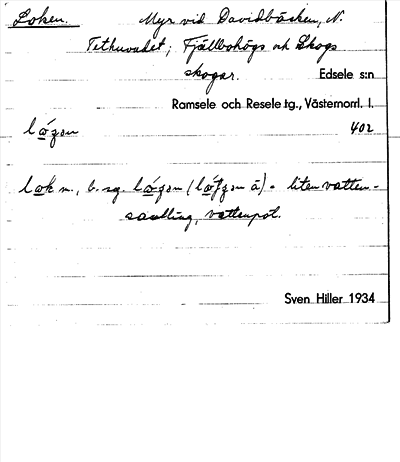 Loken. Myr vid Davidbäcken, N.
Tethuvudet; Fjällbohögs och Skogs
skogar. Edsele s:n
Ramsele och Resele tg., Västernorrl. l.
402
lok m., b. sg. (å) = liten vatten-
samling, vattenpöl.
Sven Hiller 1934